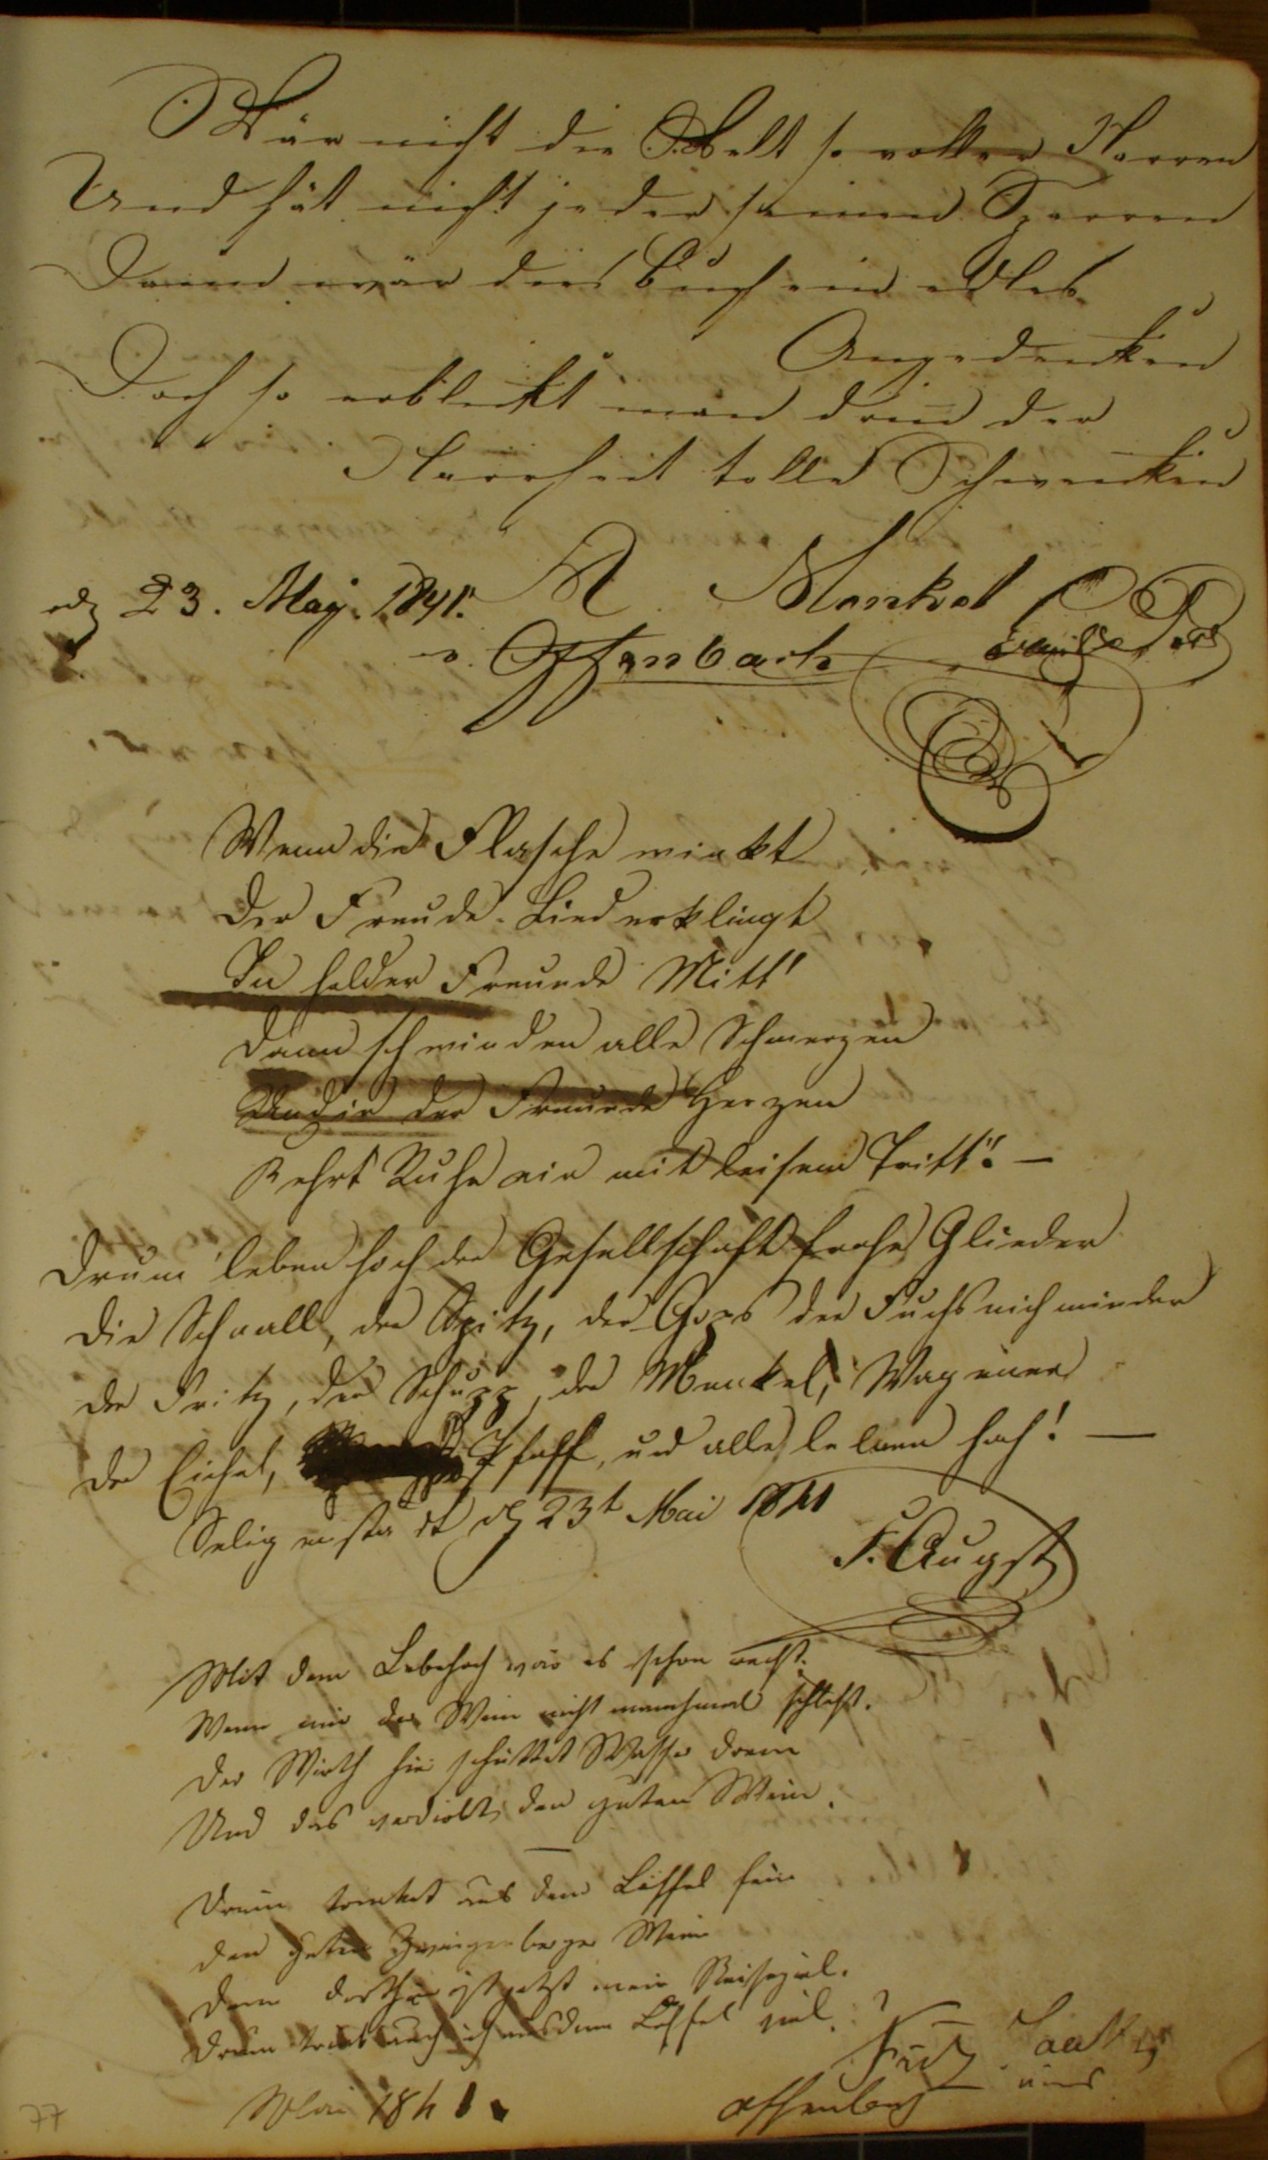 Wär nicht die Welt so voller Narren
Und hät nicht jeder seinen Sparren
Dann wär dies Buch ein edles
Angedenken
Doch so erblickt man drin der
Narrheit tolle Schwenken
23. May. 1841. Menkel
v. Offenbach
Wenn die Flasche winkt
Der Freude Lied erklingt
In holder Freunde Mitt'
Dann schwinden alle Schmerzen
Und in der Freunde Herzen
Kehrt Ruhe ein mit leisem Tritt". —
Drum leben hoch der Gesellschaft frohe Glieder
Die Schnall, der Spitz, der der Fuchs nich minder
Der Fritz, der Schupp, der Menkel, Wagener
Der Eichel, Pfaff, und alle leben hoch! —
Seligenstadt d 23t Mai 1841
F. August
Mit dem Lebehoch wär es schon recht.
Wenn nur der Wein nicht manchmal schlecht.
Der Wirth hie schüttet Wasser drein
Und das verdirbt den guten Wein.
Drum trinket aus dem Löffel fein
den guten Zwingenberger Wein
Denn dorthin ist jetzt mein Reiseziel.
Drum trink auch ich aus dem Löffel viel.
Fritz
Mai 1841. Offenbach
77